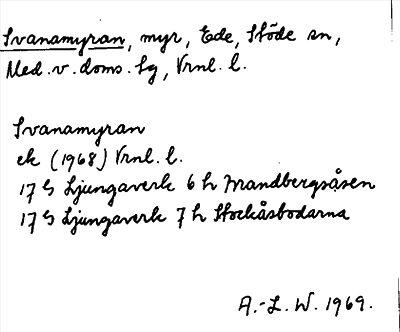 Svanamyran, myr, Ede, Stöde sn,
Med. v. doms. Sg, Vrnl. l.
Svanamyran
ek (1968) Vrnl. l.
17 G Ljungaverk 6 h Mrandbergsåsen
17 G Ljungaverk 7 h Stockåsbodarna
A.-L. W. 1969.